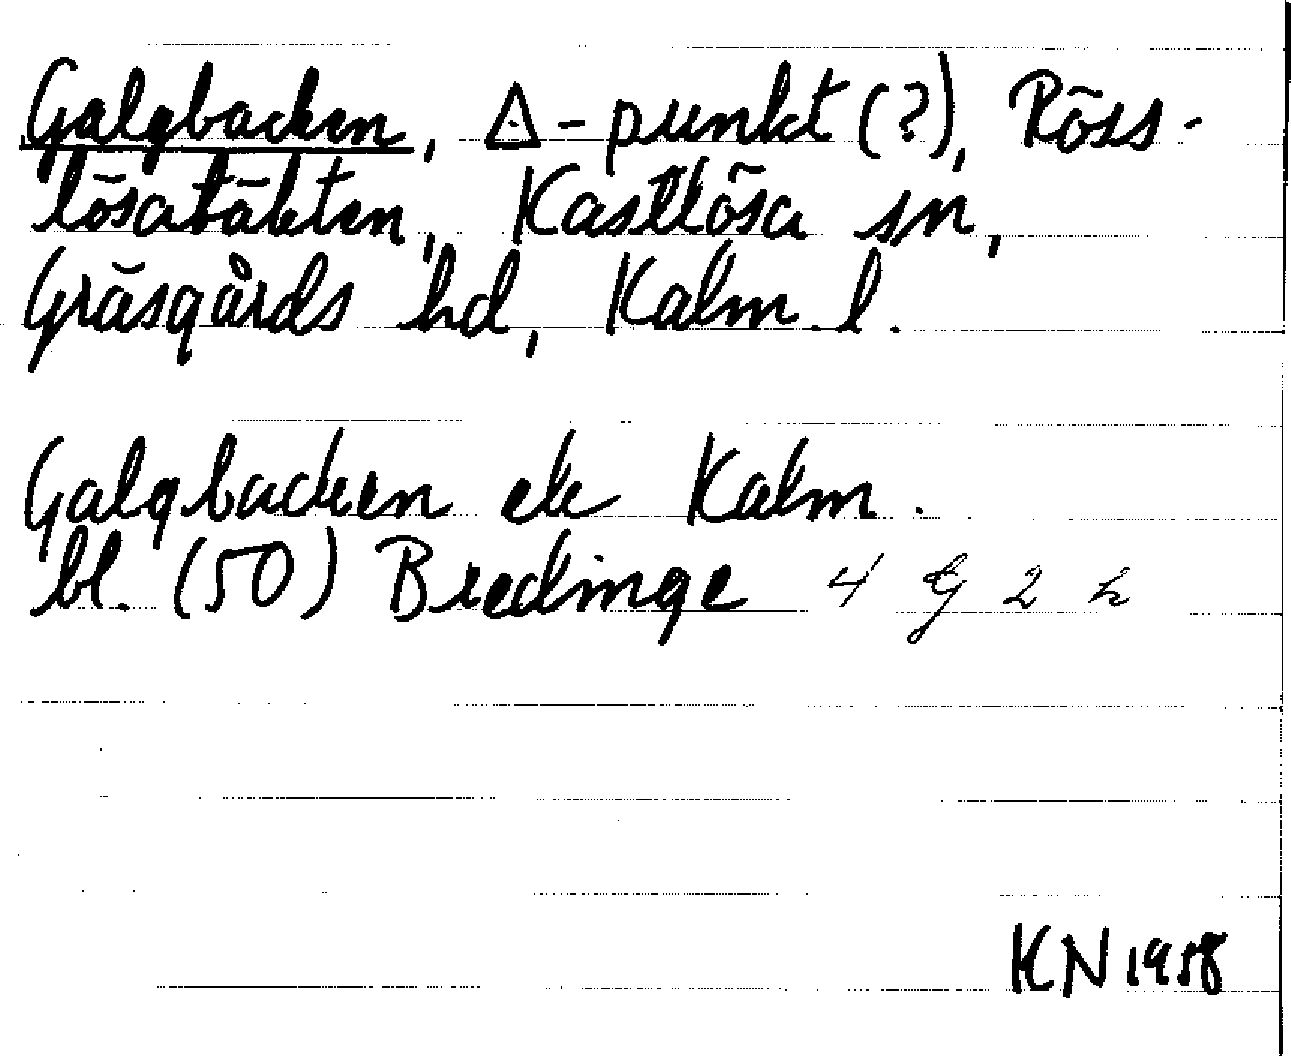 Galgbacken, △-punkt(?), Röss-
lösatäkten, Kastlösa sn,
Gräsgårds hd, Kalm. l.
Galgbacken ek Kalm.
bl. (50) Bredinge 4 G 2 h
KN 1958